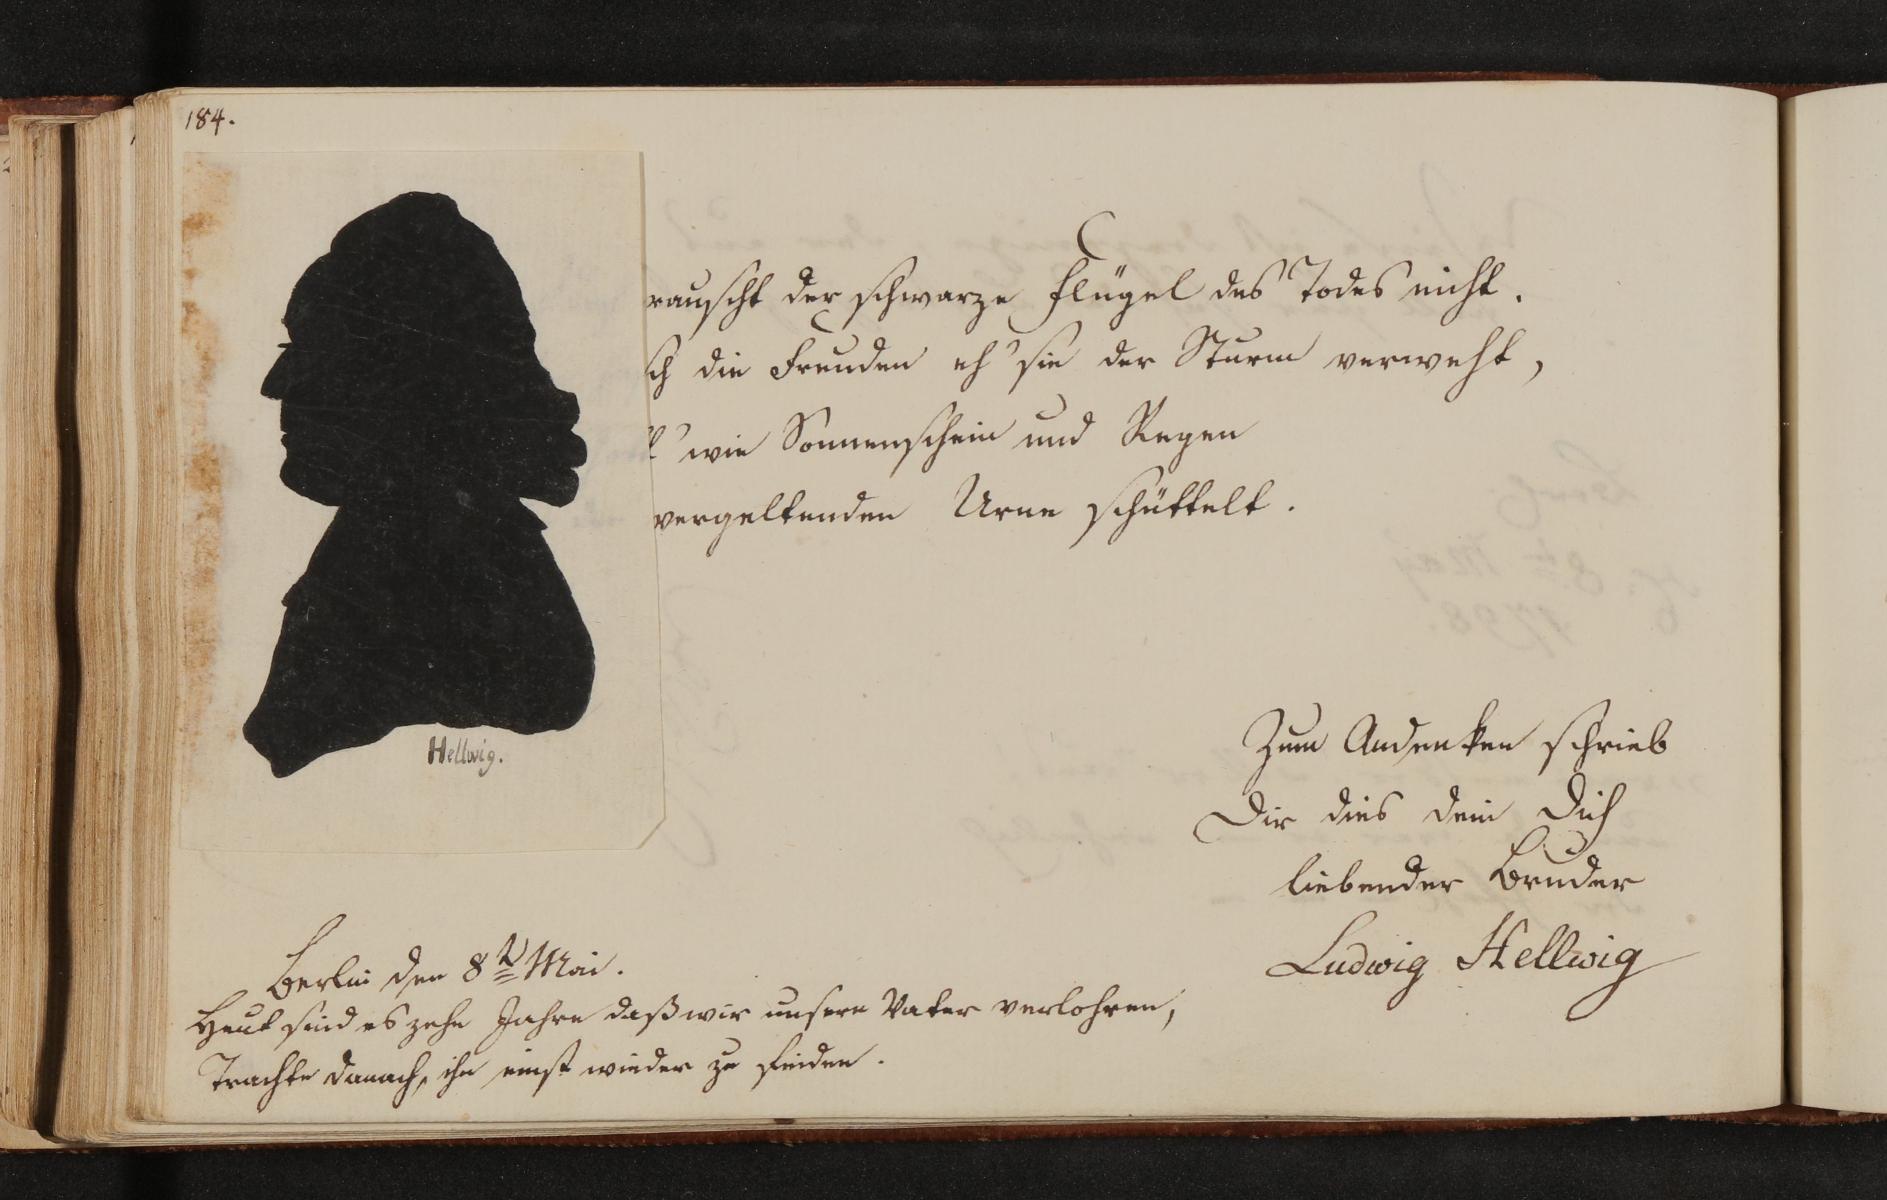 184.
rauscht der schwarze Flügel des Todes nicht.
ch die Freuden eh' sie der Sturm verweht,
wie Sonnenschein und Regen
vergeltenden Urne schüttelt.
Hellwig.
Zum Andenken schrieb
Dir dies dein Dich
liebender Bruder
Ludwig Hellwig
Berlin den 8t Mai.
Heut sind es zehn Jahre daß wir unsern Vater verlohren,
Trachte danach, ihn einst wieder zu finden.